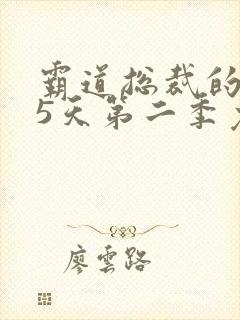 霸道总裁的
5天第二季
廖雲路